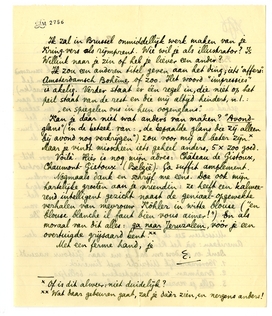 2756
Ik zal in Brussel onmiddellijk werk maken van je
Kring-vers als rijmprent. Wie wil je als illustrator? Is
Willink naar je zin of heb je liever een ander?
Ik zou een anderen titel geven aan het ding, iets
Amsterdamsch Bohême of zoo. Het woord "impressies"
is akelig. Verder staat er één regel in, die niet op het
peil staat van de rest en die mij altijd hindert, n.l.
en spiegelen ons in hun oogenglans.
Kan je daar niet wat anders van maken? "Avond-
glans", in de beteek. van "de bepaalde glans die zij alleen
bij avond nog verkrijgen", zou voor mij al beter zijn,
maar je vindt misschien iets geheel anders, 5 x zoo goed.
Voilà. Hier is nog mijn adres: Château de Gistoux,
Chaumont-Gistoux (België). Ça suffit amplement.
Nogmaals dank en schrijf me eens. Doe ook mijn
hartelijke groeten aan je vriendin: ze heeft een
intelligent gezicht naast de geniaal-opgewekte
verhalen van mevrouw Köhler in witte blouse ("en
blouse blanche il faut bien vous aimer!") En als
moraal van dit alles: ga naar Jeruzalem, voor je een
overtuigde grijsaard bent**
Met een ferme hand, je
E.
* Of is dit alweer niet duidelijk?
** Wat daar gebeuren gaat, zal je dáár zien, en nergens anders!